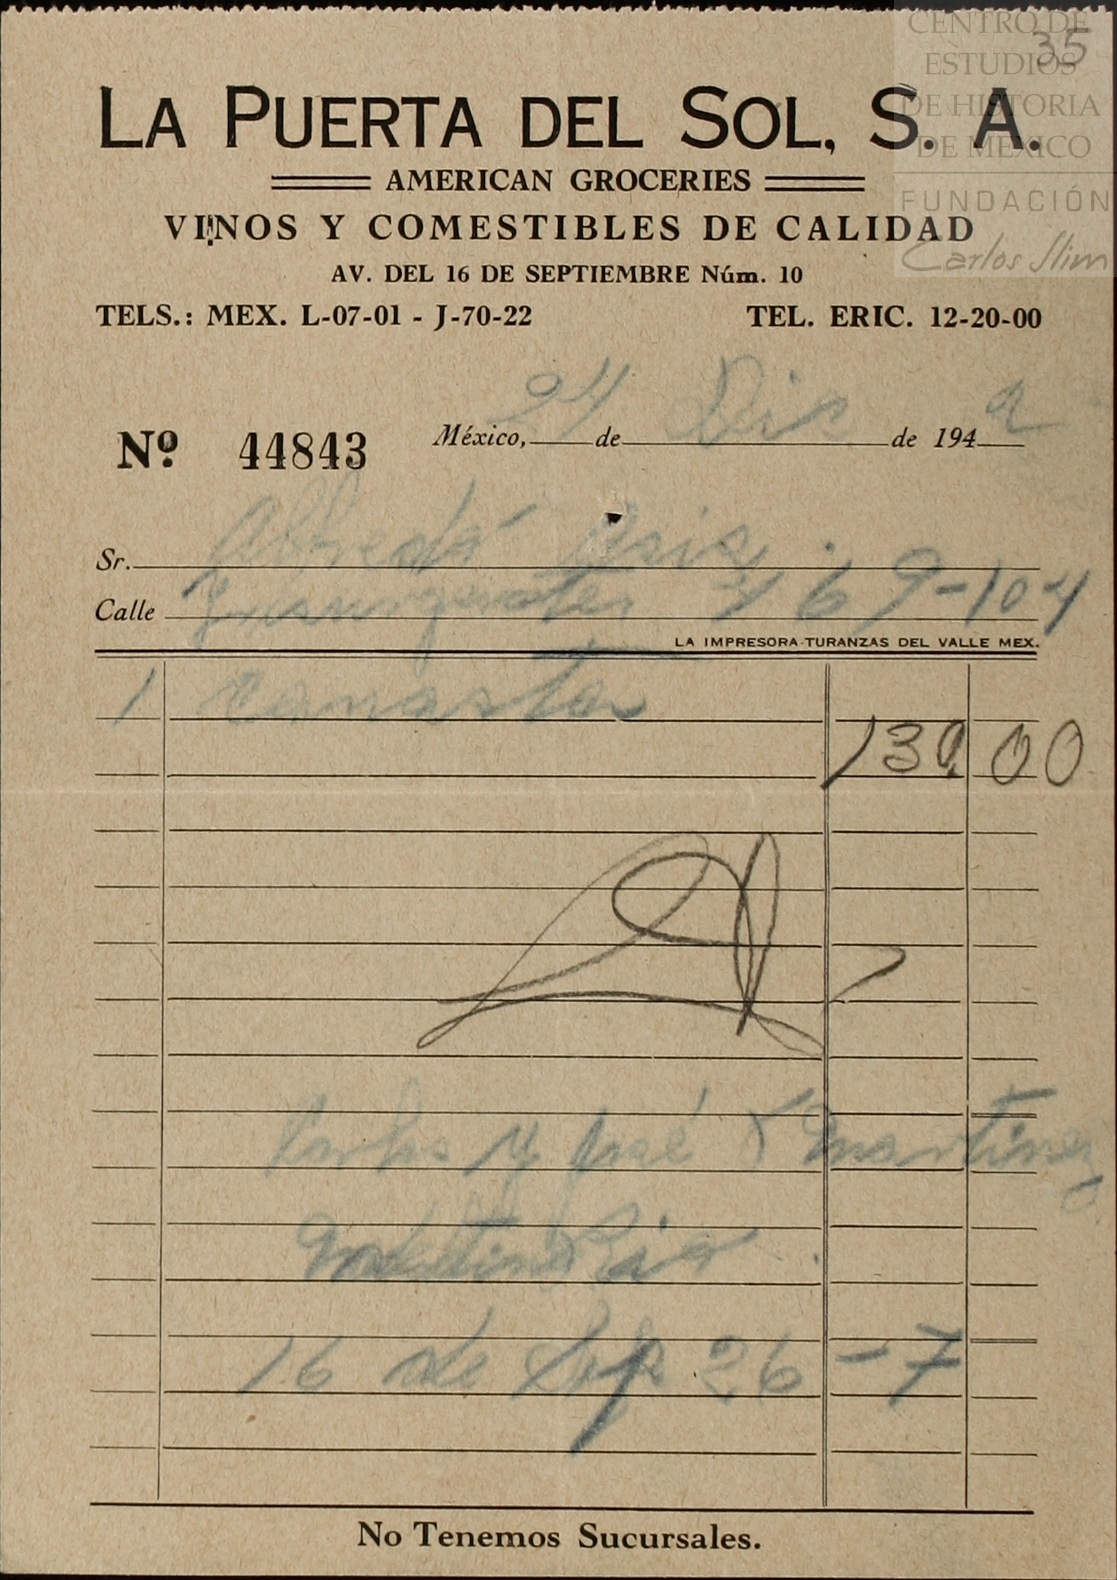 35
CENTRO DE
ESTUDIOS
DE HISTORIA
DE MÉXICO
FUNDACIÓN
Carlos Slim
LA PUERTA DEL SOL, S. A.
AMERICAN GROCERIES
VINOS Y COMESTIBLES DE CALIDAD
AV. DEL 16 DE SEPTIEMBRE Núm. 10
TELS.: MEX. L-07-01 - J-70-22 TEL. ERIC. 12-20-00
Nº 44843 México, 24 de Dic de 1942
Sr. Asis
Calle Insurgentes 469-104
LA IMPRESORA-TURANZAS DEL VALLE MEX.
1 Canasta
130 00
y José Martinez
16 de Sep 26-7
No Tenemos Sucursales.